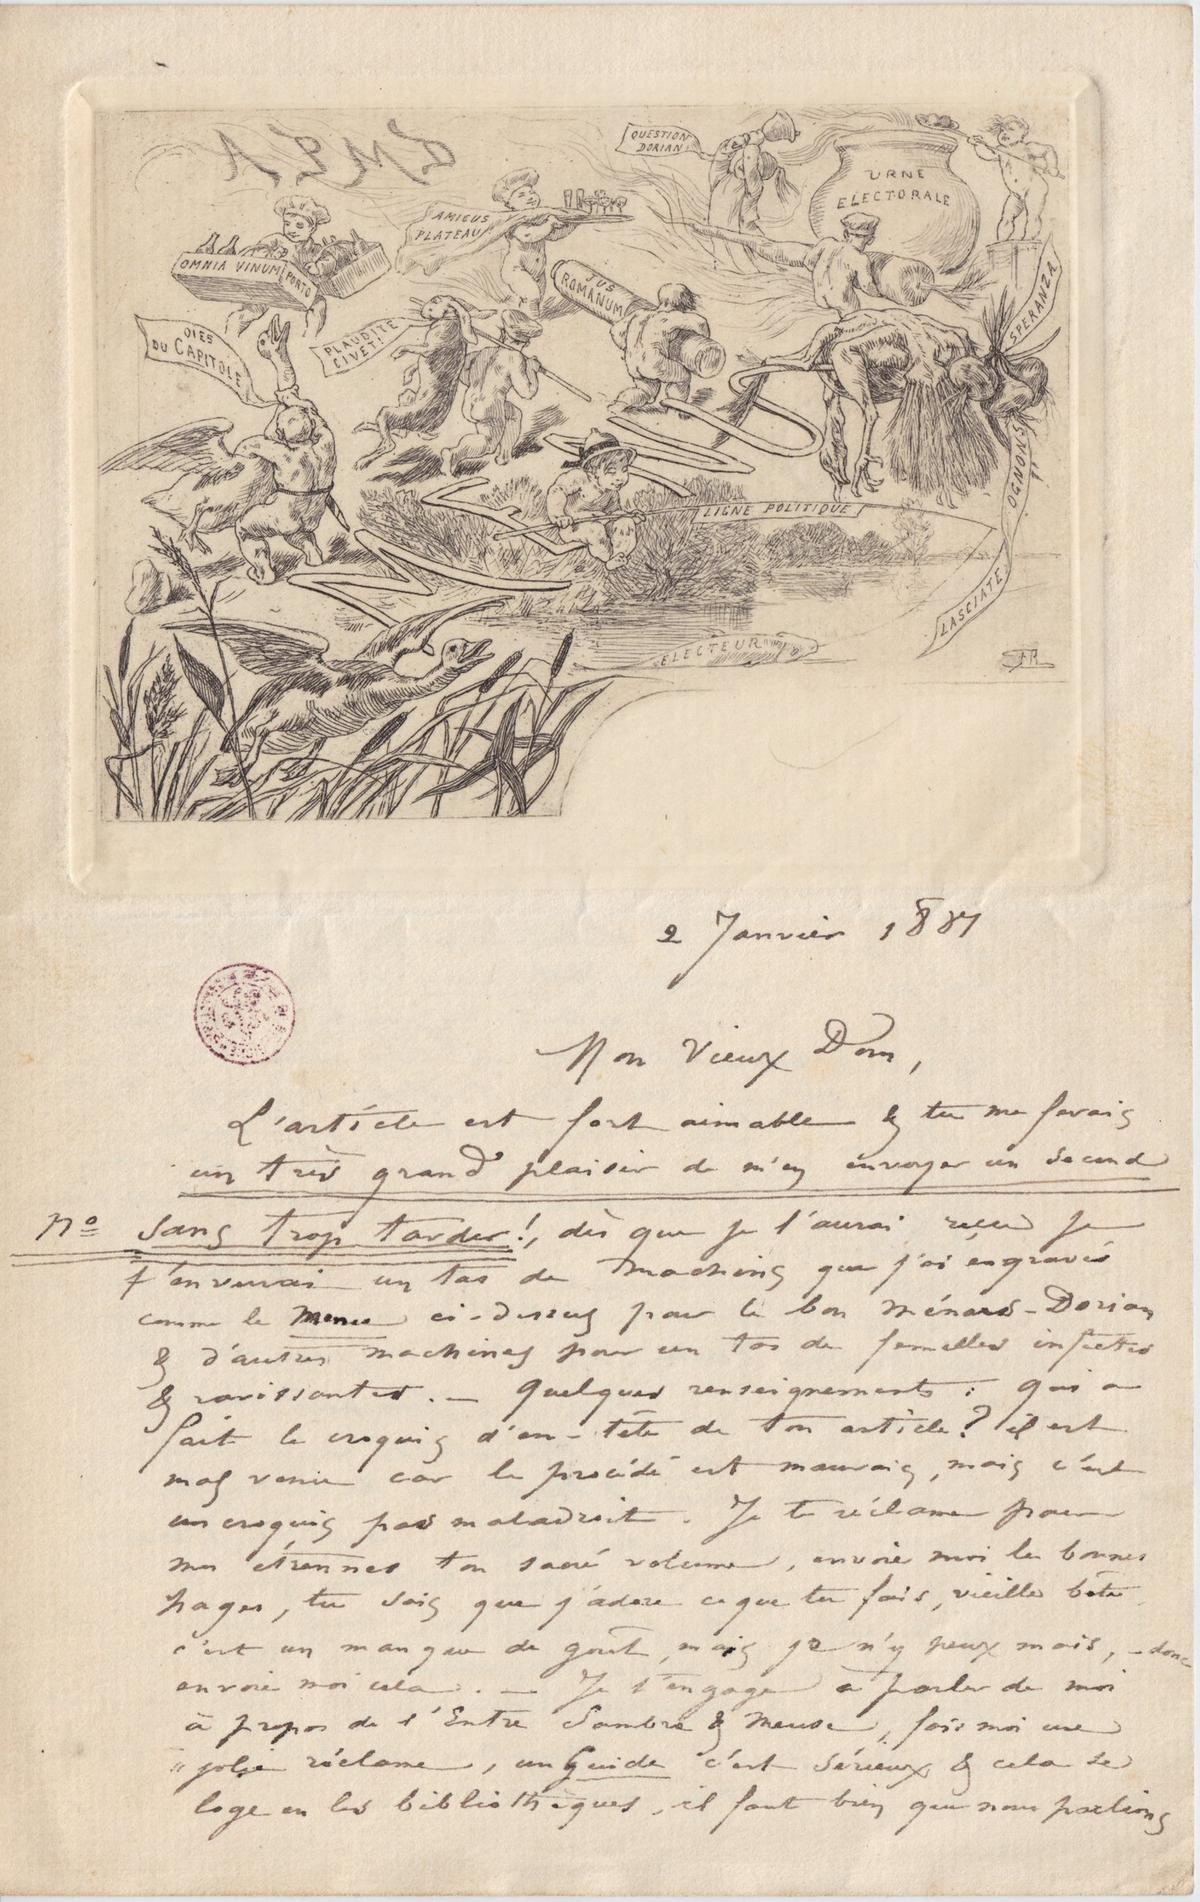 QUESTION
DORIAN
URNE
ELECTORALE
AMICUS
PLATEAU
OMNIA VINUM
PORTO
JUS
ROMANUM
OIES
DU CAPITOLE
PLAUDITE
CIVET!
SPERANZA
OGNONS
LASCIATE
LIGNE POLITIQUE
ELECTEUR
FR
2 Janvier 1887
Mon Vieux Dom,
L'article est fort aimable & tu me ferais
un très grand plaisir de m'en envoyer un second
No sans trop tarder!, dès que je l'aurai recu je
t'enverrai un tas de machins que j'ai engravés
comme le Menu ci-dessus pour le bon Ménard-Dorian
& d'autres machines pour un tas de femelles infectes
& ravissantes. — Quelques renseignements: Qui a
fait le croquis d'en-tête de ton article? il est
mal venu car le procédé est mauvais, mais c'est
un croquis pas maladroit. Je te réclame pour
mes étrennes ton sacré volume, envoie moi les bonnes
pages, tu sais que j'adore ce que tu fais, vieille bête
c'est un manque de goût, mais je n'y peux mais, – donc
envoie moi cela. — Je t'engage à parler de moi
à propos de l'Entre Sambre & Meuse, fais moi une
jolie réclame, un Guide c'est sérieux & cela se
loge en les bibliothèques, il faut bien que nous parlions